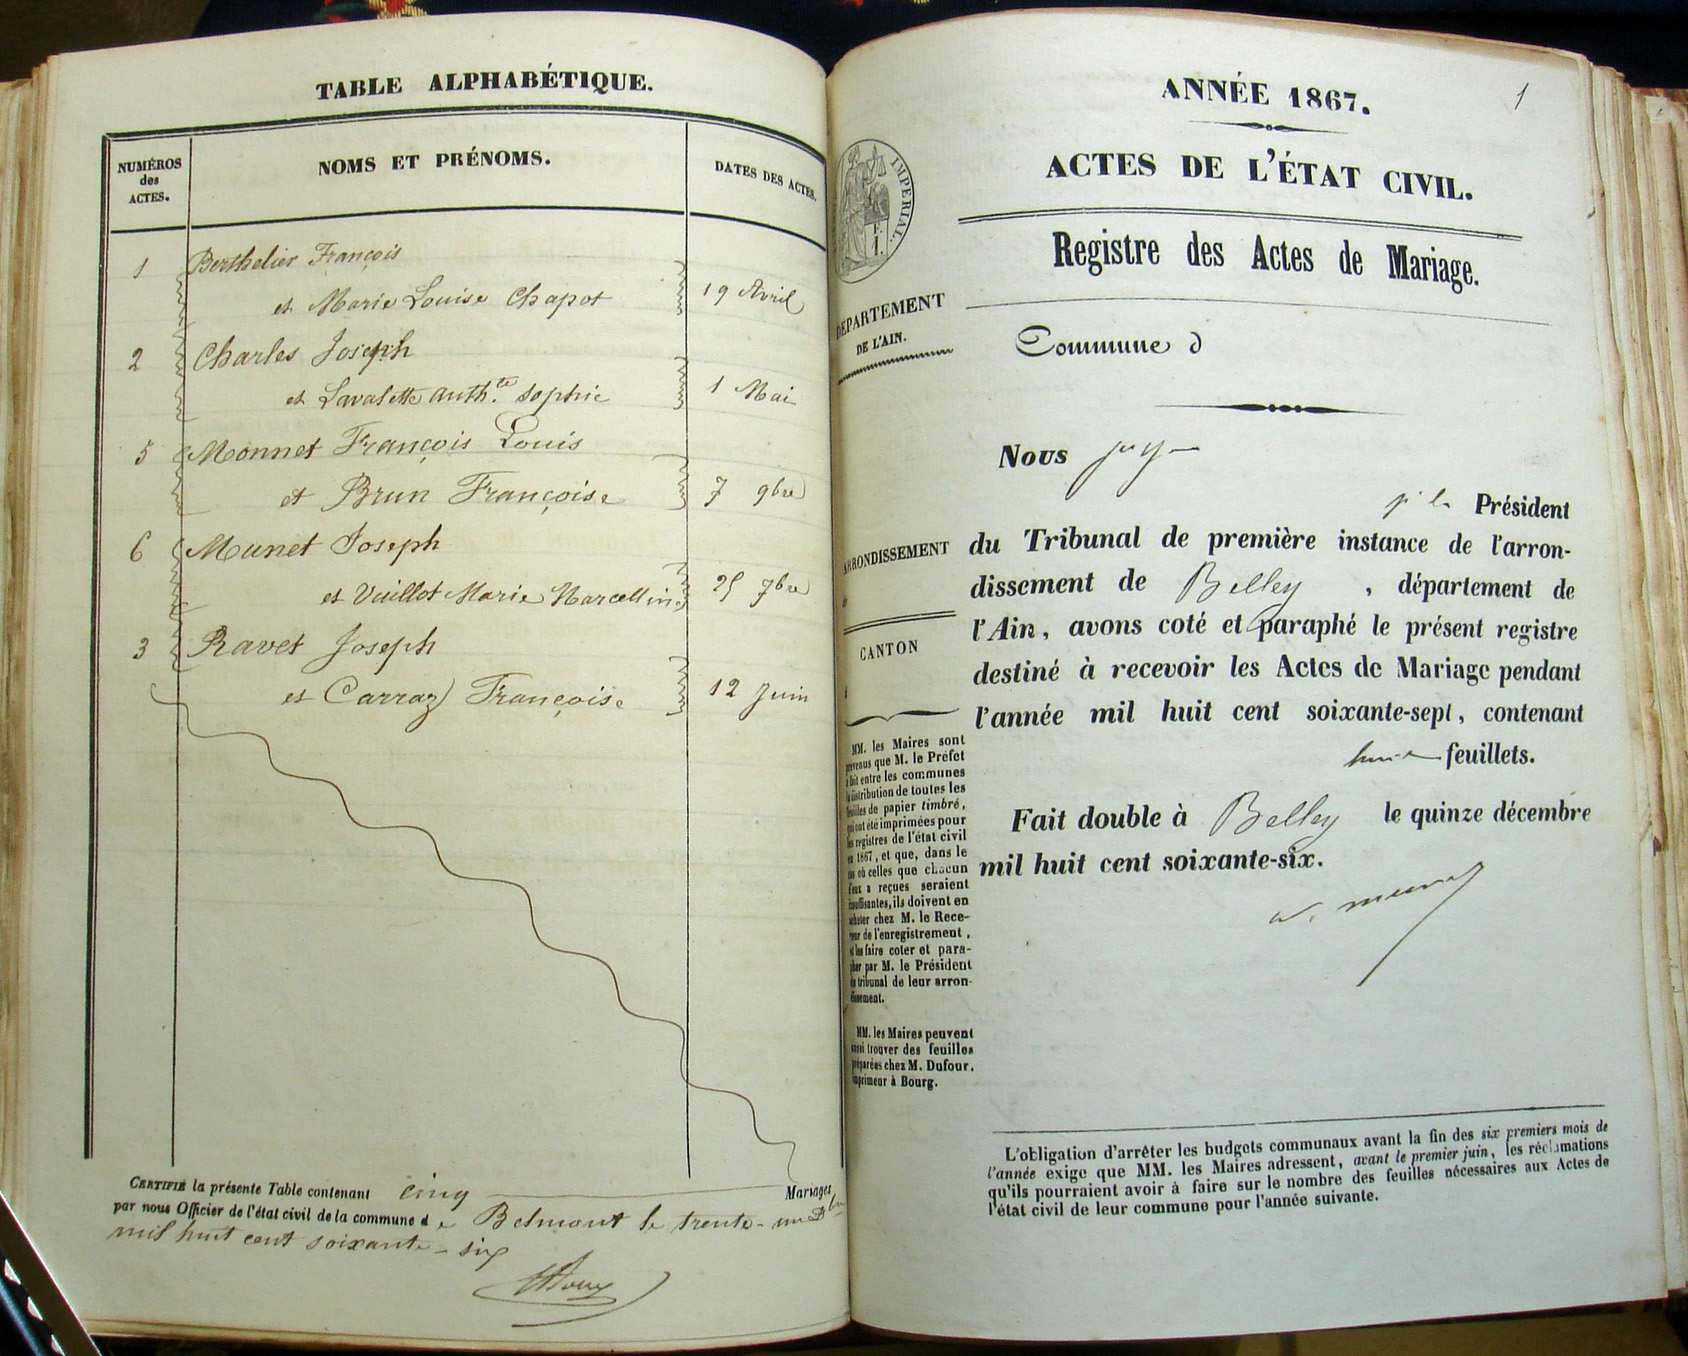 TABLE ALPHABÉTIQUE.
NUMÉROS
des
ACTES.
NOMS ET PRÉNOMS.
DATES DES ACTES.
1 Berthelier François
et Marie Louise Chapot 19 Avril
2 Charles Joseph
et Lavalette Anth.te Sophie 1 Mai
5 Monnet François Louis
et Brun Françoise 7 9bre
6 Munet Joseph
et Vuillot Marie Marcelline 25 7bre
3 Ravet Joseph
et Carraz Françoise 12 Juin
CERTIFIÉ la présente Table contenant cinq Mariages
par nous Officier de l'état civil de la commune de Belmont le trente-un Xbre
mil huit cent soixante-six
ANNÉE 1867.
1
ACTES DE L'ÉTAT CIVIL.
Registre des Actes de Mariage.
IMPERIAL.
DÉPARTEMENT
DE L'AIN.
Commune d
Nous
Président
du Tribunal de première instance de l'arron-
dissement de Belley, département de
l'Ain, avons coté et paraphé le présent registre
destiné à recevoir les Actes de Mariage pendant
l'année mil huit cent soixante-sept, contenant
huit feuillets.
Fait double à Belley le quinze décembre
mil huit cent soixante-six.
ARRONDISSEMENT
CANTON
MM. les Maires sont
prévenus que M. le Préfet
a fait entre les communes
la distribution de toutes les
feuilles de papier timbré,
qui ont été imprimées pour
les registres de l'état civil
en 1867, et que, dans le
cas où celles que chacun
d'eux a reçues seraient
insuffisantes, ils doivent en
acheter chez M. le Rece-
veur de l'enregistrement,
et les faire coter et para-
pher par M. le Président
du tribunal de leur arron-
dissement.
MM. les Maires peuvent
aussi trouver des feuilles
préparées chez M. Dufour,
imprimeur à Bourg.
L'obligation d'arrêter les budgets communaux avant la fin des six premiers mois de
l'année exige que MM. les Maires adressent, avant le premier juin, les réclamations
qu'ils pourraient avoir à faire sur le nombre des feuilles nécessaires aux Actes de
l'état civil de leur commune pour l'année suivante.